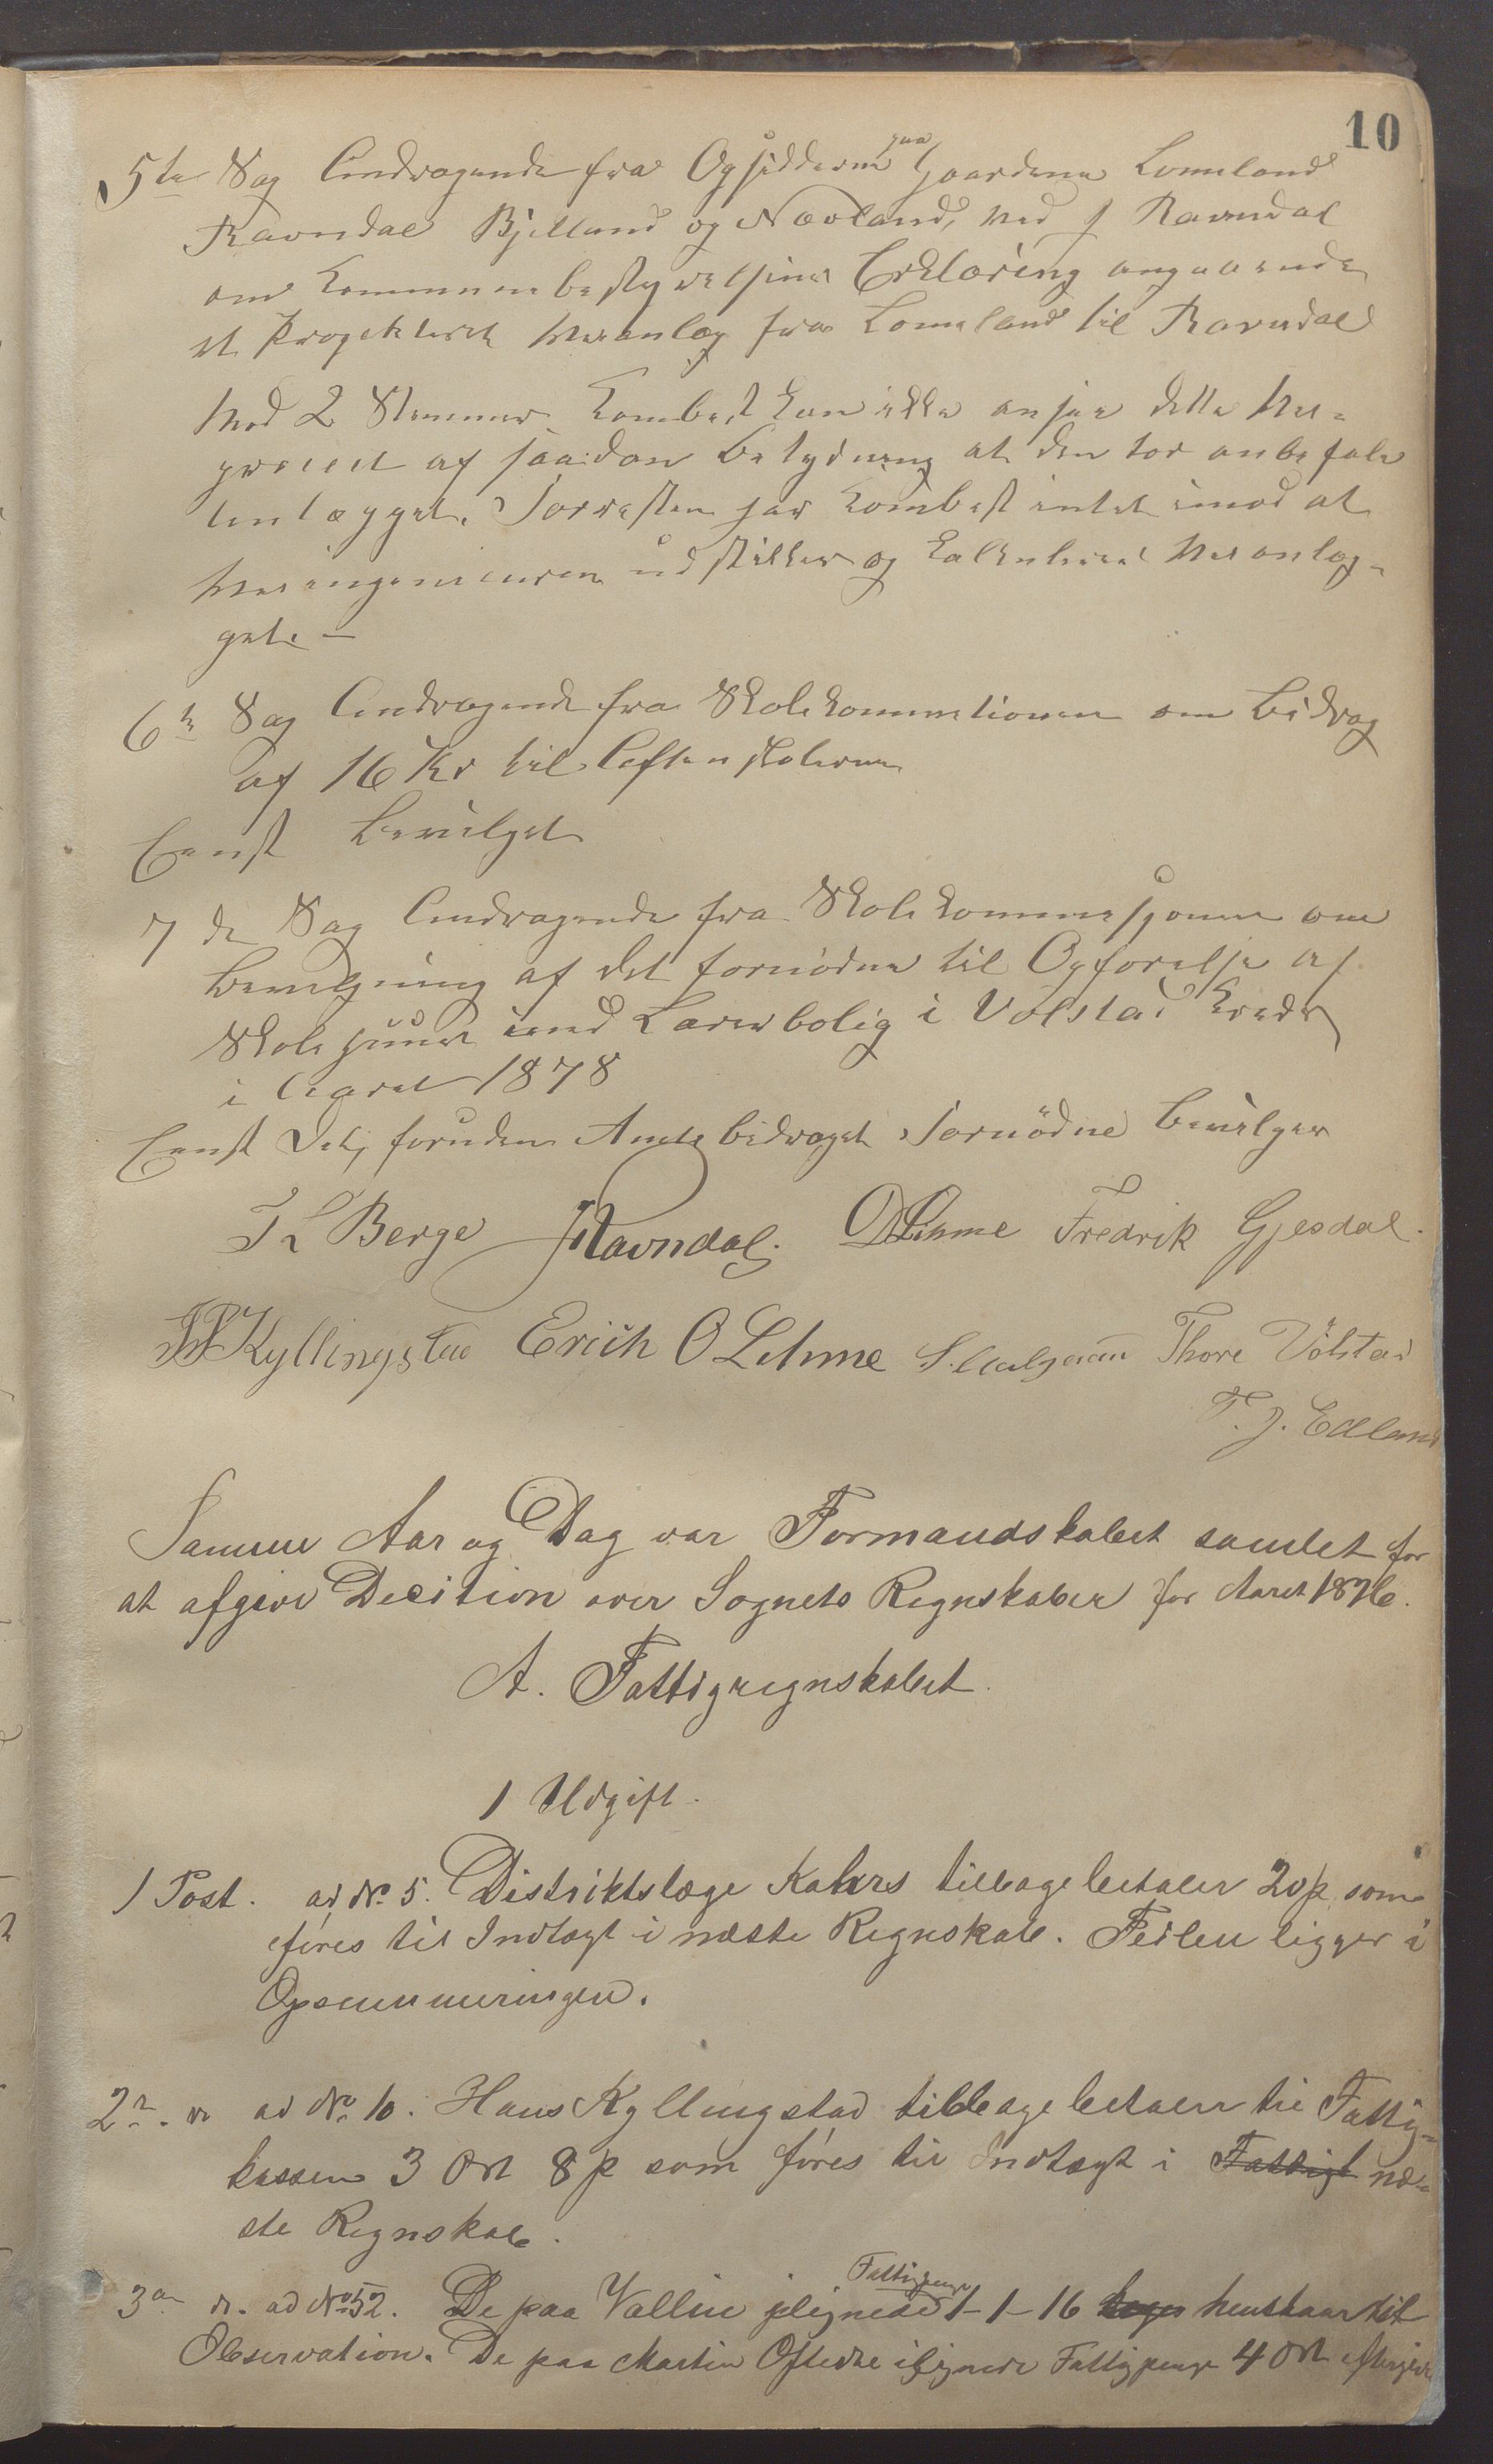 10
5te Sag Andragende fra Opsidderne paa Gaardene Lomeland
Ravndal Bjelland og Nævland, ved J Ravndal
om Kommunebestyrelsens Erklæring angaaende
et projekteret Veianlæg fra Lomeland til Ravndal
Mod 2 Stemmer. Kombest kan ikke ansee dette Vei-
af saadan Betydning at den tør anbefale
Anlægget. Forresten har Kombest intet imod at
Veiingenieuren udstikker og kalkulerer Veianlæg-
get. —
6te Sag Andragende fra Skolekommitionen om Bidrag
af 16 Kr til Aftenskolerne
Eenst Bevilget
7de Sag Andragende fra Skolekommisjonen om
Bevilgning af det fornødne til Opførelse af
Skolehuus med Lærerbolig i Volstad Kreds
i Aaret 1878
Eenst Det, foruden Amtsbidraget Fornødne bevilges
T L Berge JRavndal. O Lihme Fredrik Gjesdal.
Kyllingstad Erich O Lihme S. Aalgaard Thore Vølstad
T. J. Edland
Samme Aar og Dag var Formandskabet samlet for
at afgive Decition over Sognets Regnskaber for Aaret 1876.
A. Fattigregnskabet.
1 Udgift.
1 Post. ad No 5. Distriktslæge Kahrs tilbagebetaler 20 p som
føres til Indtægt i næste Regnskab. Feilen ligger i
Opsummeringen.
2n. " ad No 10. Hans Kyllingstad tilbagebetaler til Fattig-
kassen 3 Ort 8 p som føres til Indtægt i Fattigt næ-
ste Regnskab.
3die " ad No 52. De paa Vallie ilignede Fattigpenge 1-1-16 henstaar til
Observation. De paa Martin Oftedal ilignede Fattigpenge 4 Ort eftergives